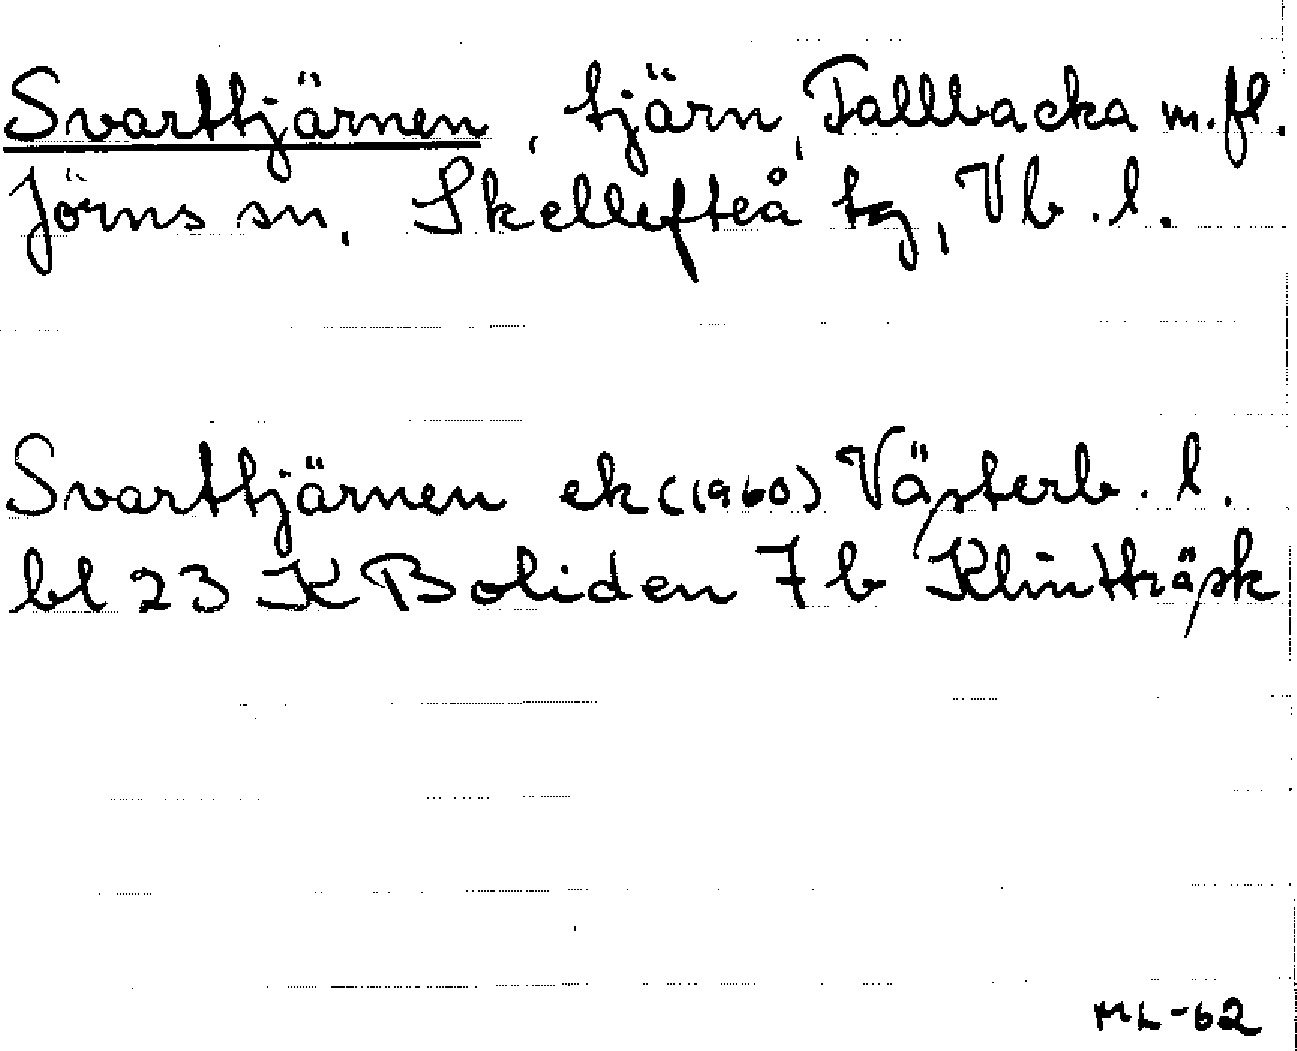 Svarttjärnen, tjärn, Tallbacka m.fl.
Jörns sn, Skellefteå tg, Vb.l.
Svarttjärnen ek (1960) Västerb. l.
bl 23 K Boliden 7 b Klintträsk
ML-62